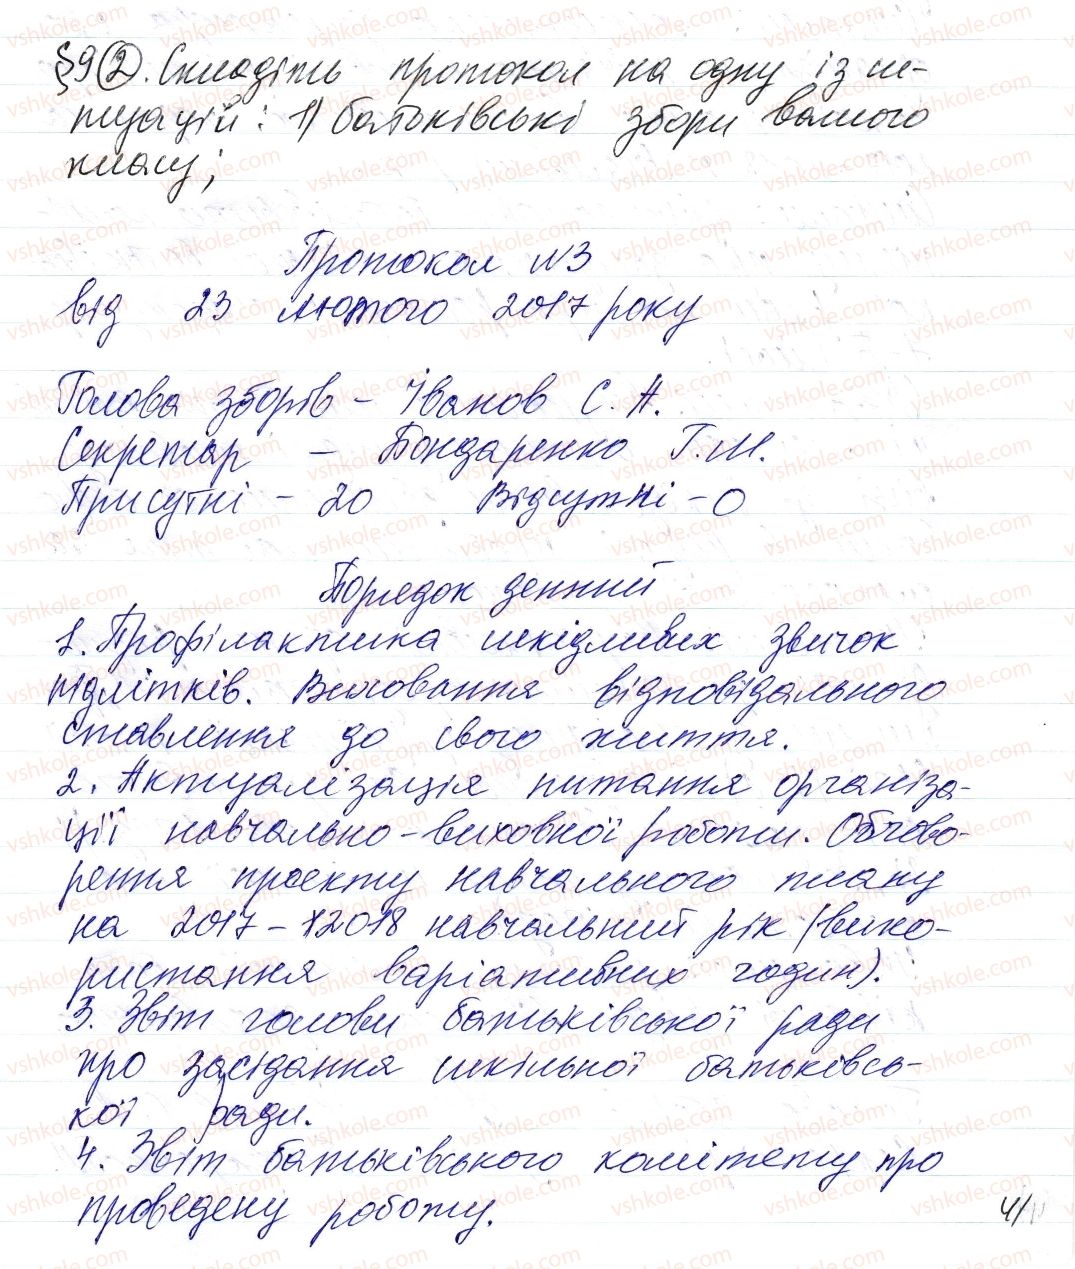 §9 2. Складіть протокол на одну із си-
туацій: 1) батьківські збори вашого
класу;
Протокол №3
від 23 лютого 2017 року
Голова зборів - Іванов С. А.
Секретар - Бондаренко Г.М.
Присутні - 20 Відсутні - 0
Порядок денний
1. Профілактика шкідливих звичок
підлітків. Виховання відповідального
ставлення до свого життя.
2. Актуалізація питання організа-
ції навчально-виховної роботи. Обгово-
рення проекту навчального плану
на 2017-2018 навчальний рік (вико-
ристання варіативних годин).
3. Звіт голови батьківської ради
про засідання шкільної батьківсь-
кої ради.
4. Звіт батьківського комітету про
проведену роботу.
4/